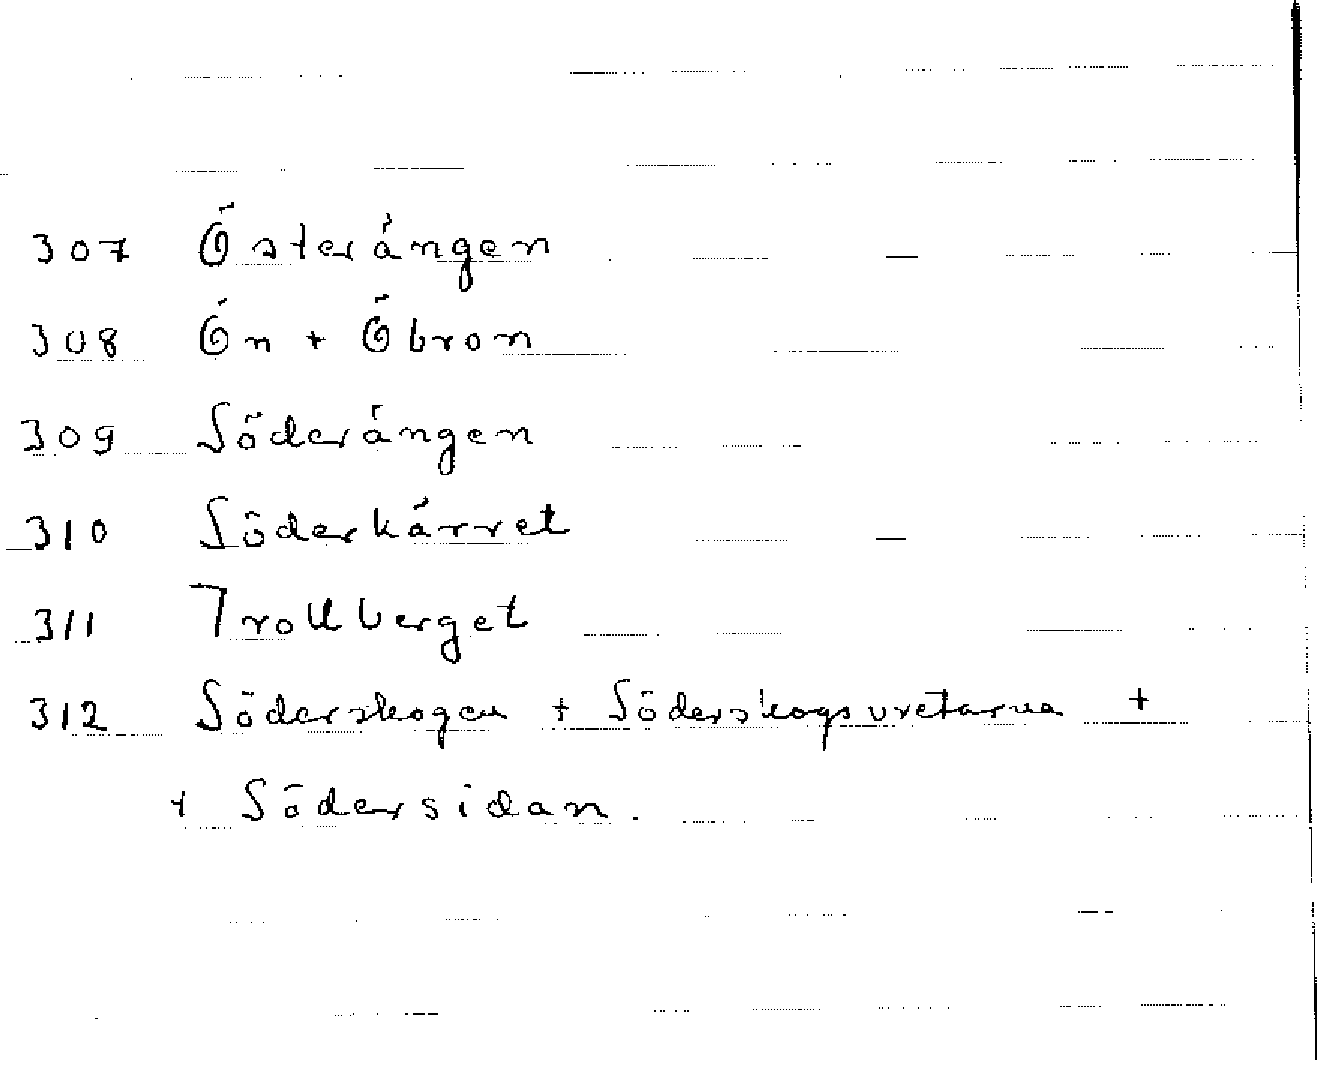 307 Österängen
308 Ön + Öbron
309 Söderängen
310 Söderkärret
311 Trollberget
312 Söderskogen + Söderskogsvretarna +
+ Södersidan.